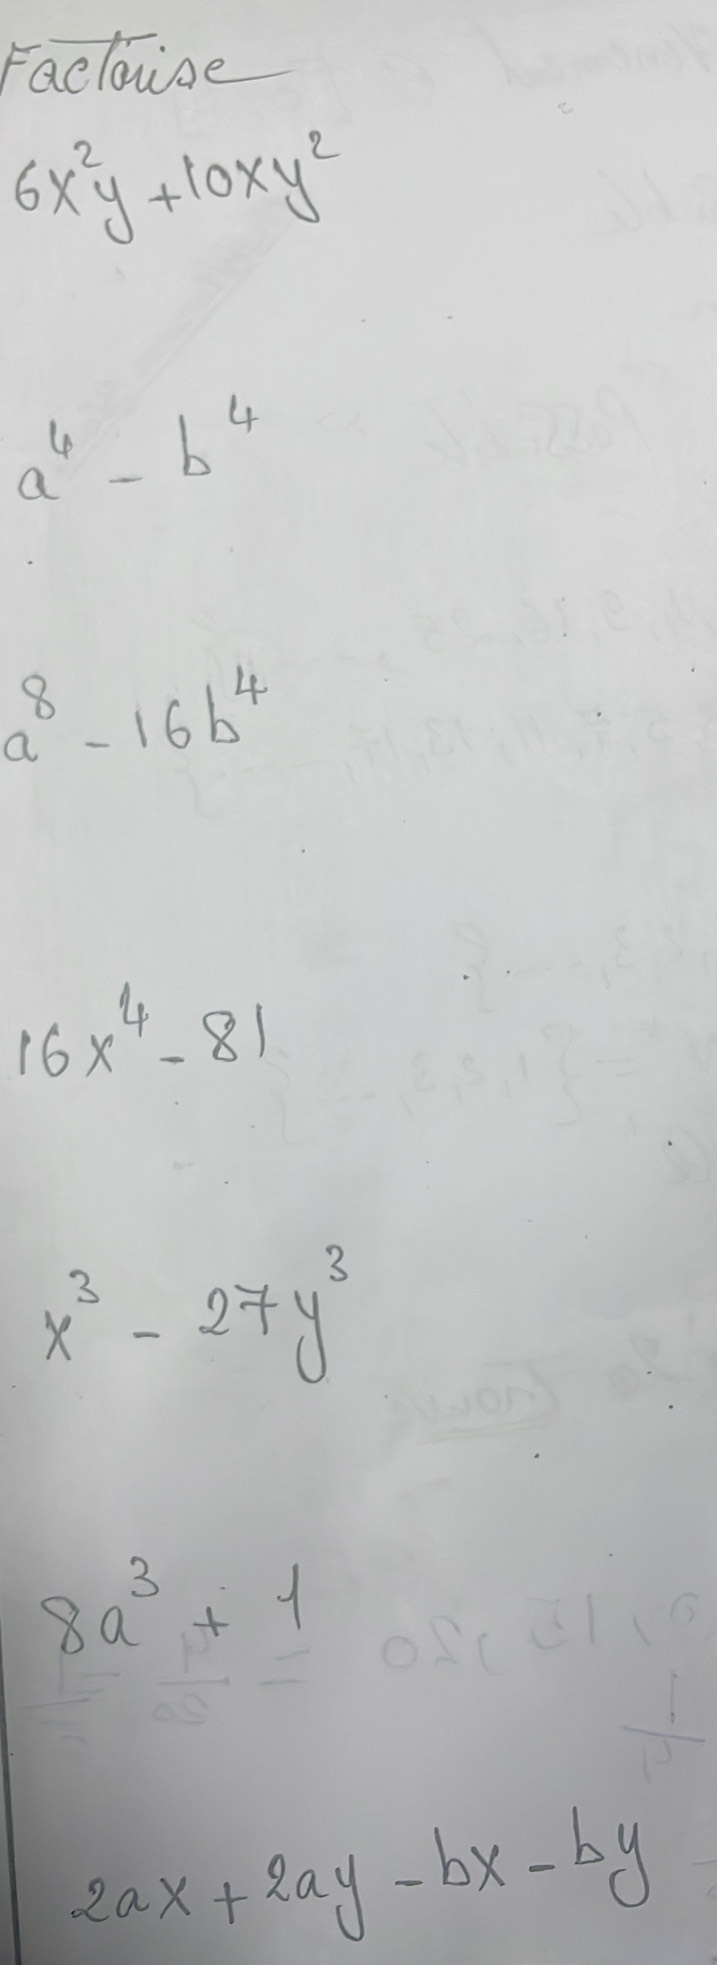 Factorise
6x²y + 10xy²
a⁴ - b⁴
a⁸ - 16b⁴
16x⁴ - 81
x³ - 27y³
8a³ + 1
2ax + 2ay - bx - by